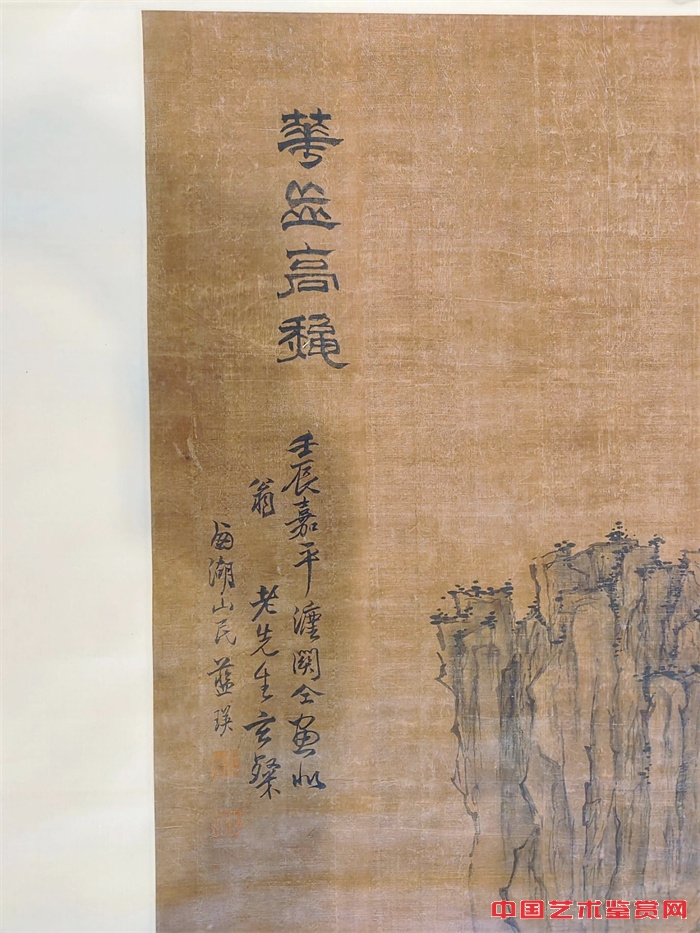 華岳高龝
壬辰嘉平灋關仝畫似
翁 老先生玄粲
西湖山民藍瑛
中国艺术鉴赏网